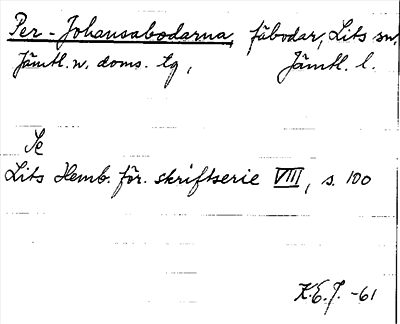 Per-Johansabodarna, fäbodar, Lits sn,
Jämtl. n. doms. tg, Jämtl. l.
Se
Lits Hemb. för. skriftserie VIII, s. 100
K.E.J. -61